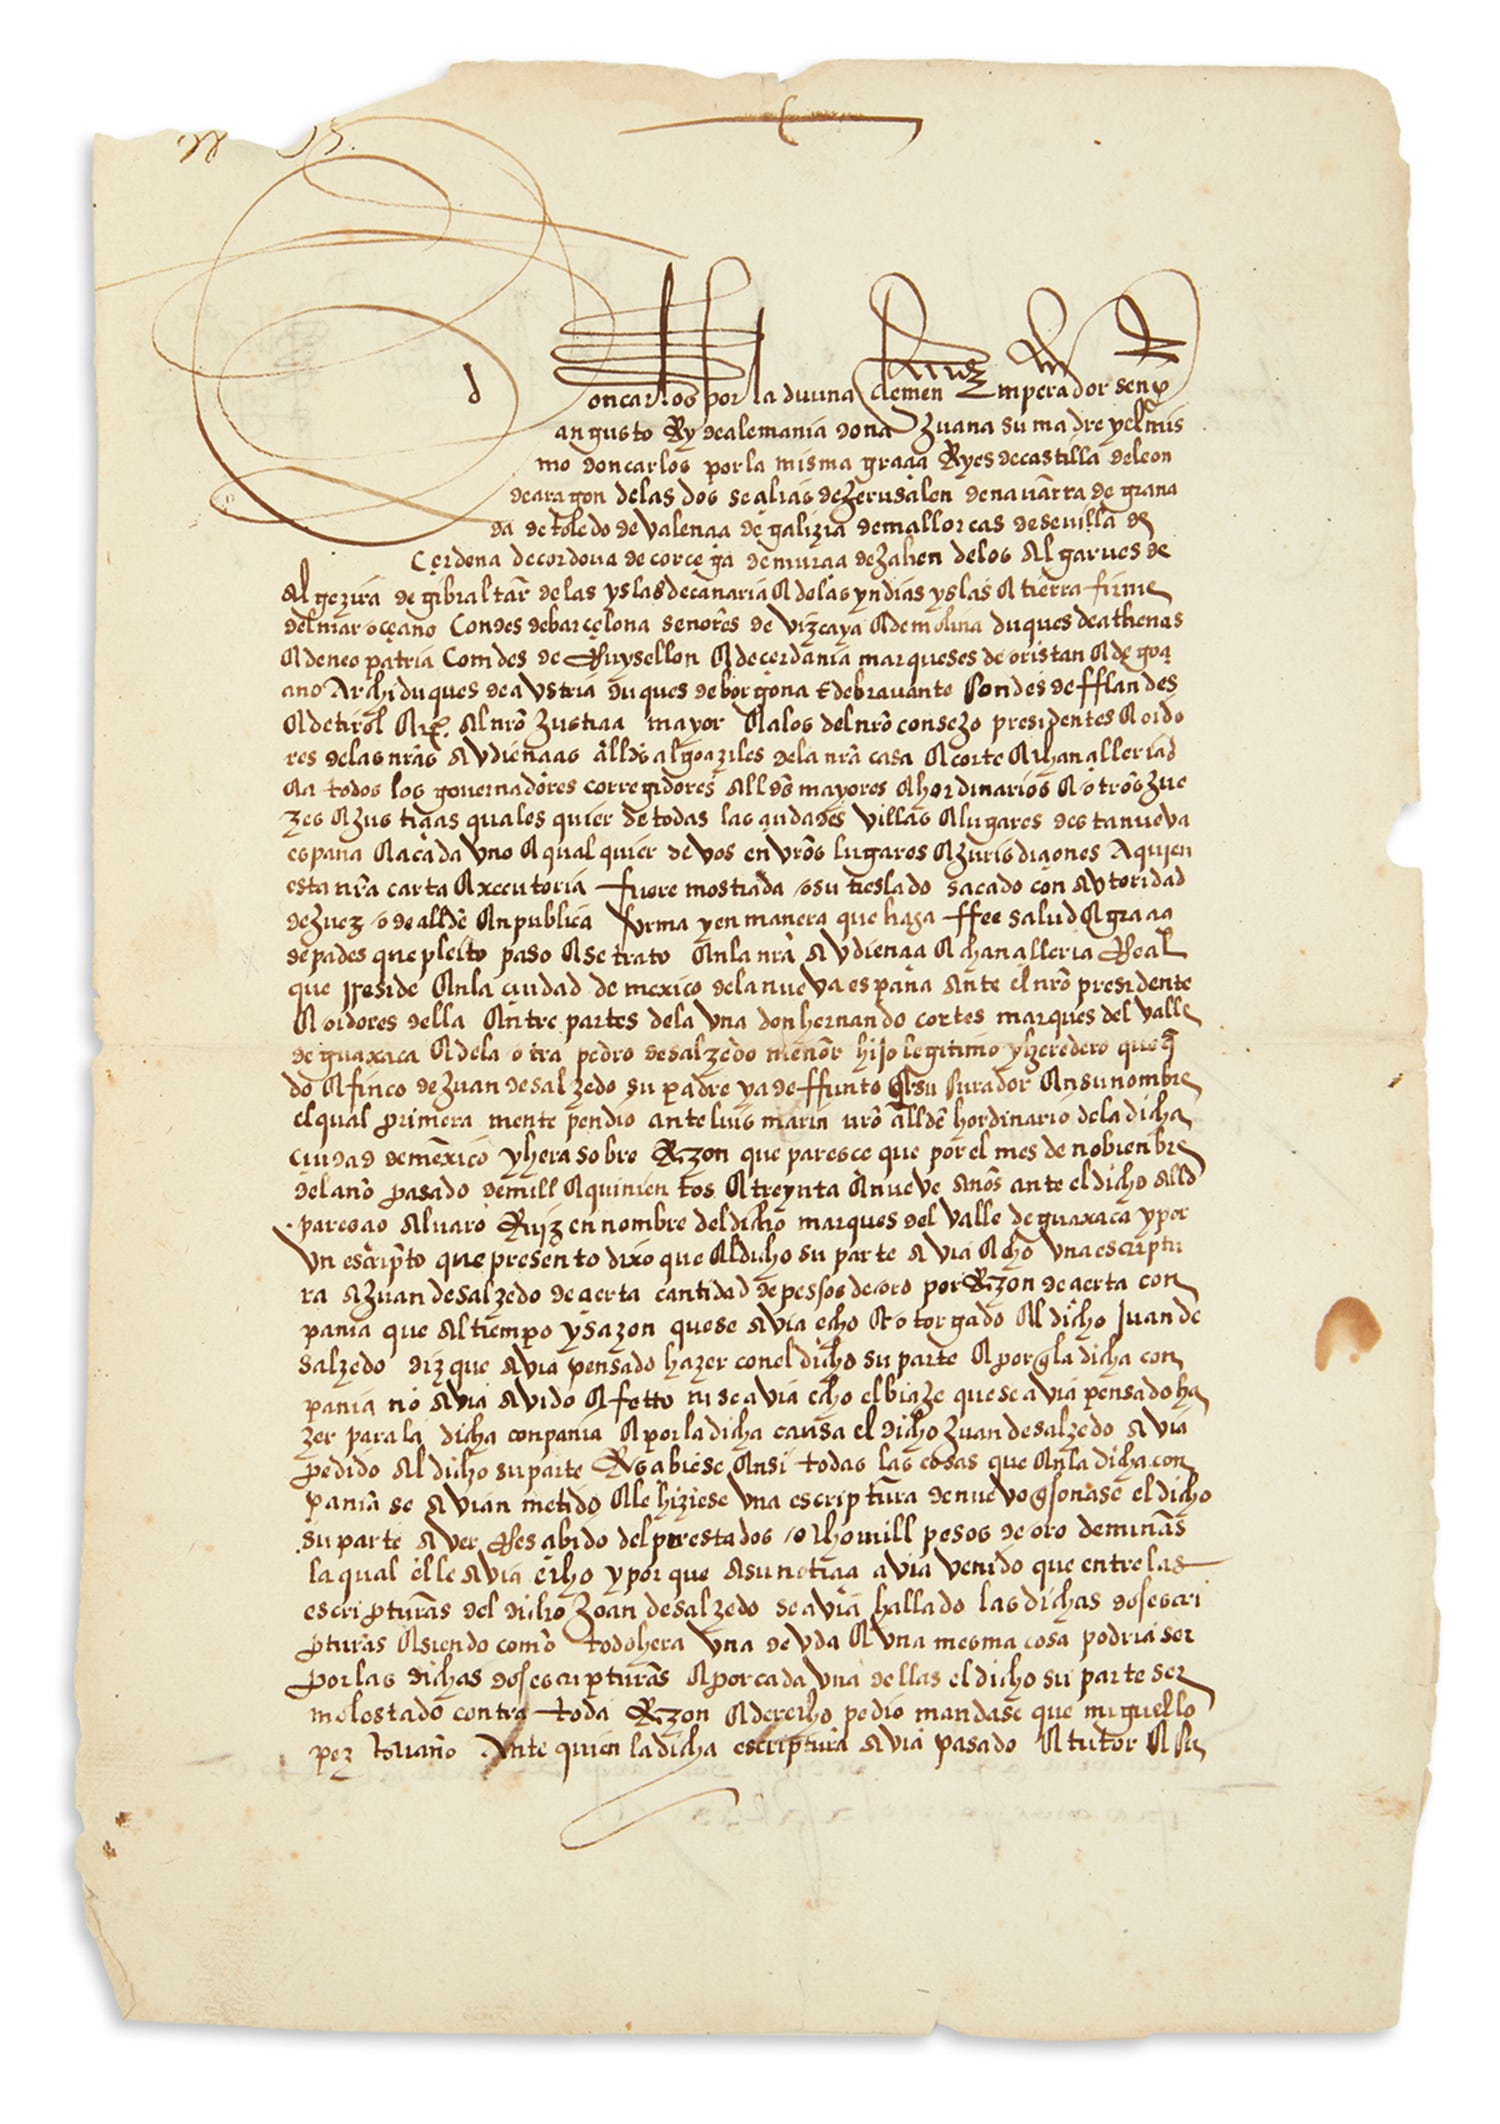 don carlos por la divina clemen Emperador senp
augusto Rey de alemania doña Juana su madre y el mis
mo don carlos por la misma graçia Reyes de castilla de leon
de aragon de las dos seçilias de Jerusalen de navarra de grana
da de toledo de valençia de galizia de mallorcas de sevilla de
Çerdeña de cordova de corçega de murçia de Jahen de los Algarves de
Algezira de gibraltar de las yslas de canaria E de las yndias yslas E tierra firme
del mar oçeano Condes de barçelona señores de vizcaya E de molina duques de athenas
E de neopatria Condes de Ruysellon E de çerdania marqueses de oristan E de goçi
ano Archiduques de avstria duques de borgoña E de bravante Condes de fflandes
E de tirol Etc. Al nro Justiçia mayor E a los del nro consejo presidentes E oido
res de las nras avdiençias alldes alguaziles de la nra casa E corte E chançilleria
E a todos los governadores corregidores alldes mayores E hordinarios E otros Jue
zes E Justiçias quales quier de todas las çiudades villas E lugares desta nueva
españa E a cada vno E qual quier de vos en vros lugares E Jurisdiçiones A quien
esta nra carta Executoria fuere mostrada o su treslado sacado con avtoridad
de Juez o de allde En publica forma y en manera que haga ffee salud E graçia
sepades que pleito paso E se trato En la nra avdiençia E chançilleria Real
que Reside En la çiudad de mexico de la nueva españa ante el nro presidente
E oidores della Entre partes de la vna don hernando cortes marques del valle
de guaxaca E de la otra pedro de salzedo menor hijo legitimo y heredero que q
do E finco de Juan de salzedo su padre ya deffunto E su curador En su nombre
el qual primera mente pendio ante luis marin nro allde hordinario de la dicha
çiudad de mexico y hera sobre Razon que paresçe que por el mes de nobienbre
del año pasado de mill E quinientos E treynta E nueve años ante el dicho alld
paresçio alvaro Ruiz en nombre del dicho marques del valle de guaxaca y por
vn escripto que presento dixo que El dicho su parte avia Echo vna escriptu
ra a Juan de salzedo de çierta cantidad de pessos de oro por Razon de çierta con
pania que al tiempo y sazon que se avia echo E otorgado El dicho Juan de
salzedo diz que avia pensado hazer con el dicho su parte E por q la dicha con
pania no avia avido Efetto ni se avia echo el biaje que se avia pensado ha
zer para la dicha conpania E por la dicha causa el dicho Juan de salzedo avia
pedido al dicho su parte Resçibiese Ensi todas las cosas que En la dicha con
pania se avian metido E le hiziese vna escriptura de nuevo q sonase el dicho
su parte aver Resçibido del prestados ocho mill pesos de oro de minas
la qual el le avia echo y por que a su notiçia avia venido que entre las
escripturas del dicho Joan de salzedo se avia hallado las dichas dos escri
pturas E siendo como todo hera vna devda E vna mesma cosa podria ser
por las dichas dos escripturas E por cada vna dellas el dicho su parte ser
molestado contra toda Razon E derecho pedio mandase que miguel lo
pez ante quien la dicha escriptura avia pasado E tutor E su